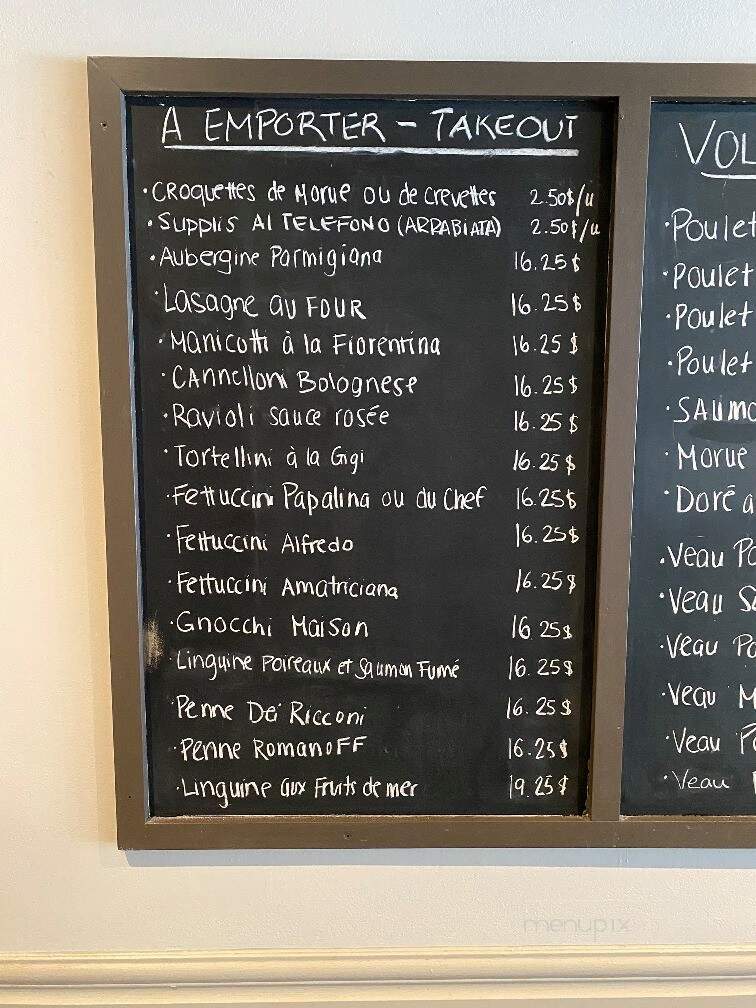 A EMPORTER - TAKEOUT
· CROQUETTES de MORUE OU de CREVETTES 2.50$/u
· SUPPLIS AI TELEFONO (ARRABIATA) 2.50$/u
· Aubergine Parmigiana 16.25$
· Lasagne au FOUR 16.25$
· Manicotti à la Fiorentina 16.25$
· CANNelloni Bolognese 16.25$
· Ravioli sauce rosée 16.25$
· Tortellini à la Gigi 16.25$
· Fettuccini Papalina ou du Chef 16.25$
· Fettuccini Alfredo 16.25$
· Fettuccini Amatriciana 16.25$
· Gnocchi Maison 16.25$
· Linguine Poireaux et Saumon Fumé 16.25$
· Penne Dei Ricconi 16.25$
· Penne ROMANOFF 16.25$
· Linguine aux Fruits de mer 19.25$
VOL
· Poulet
· Poulet
· Poulet
· Poulet
· SAUMO
· Morue
· Doré a
· Veau Po
· Veau Sa
· Veau Po
· Veau M
· Veau Po
· Veau
menupix